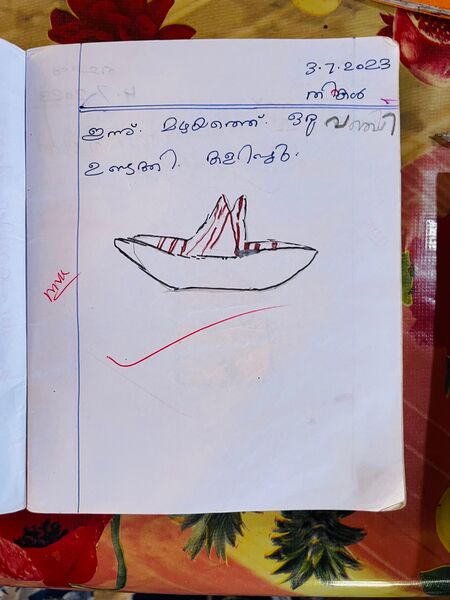 3.7.2023
തിങ്കൾ
ഇന്ന്. മഴയത്ത്. ഒരു വഞ്ചി
ഉണ്ടാക്കി. കളിച്ചു.